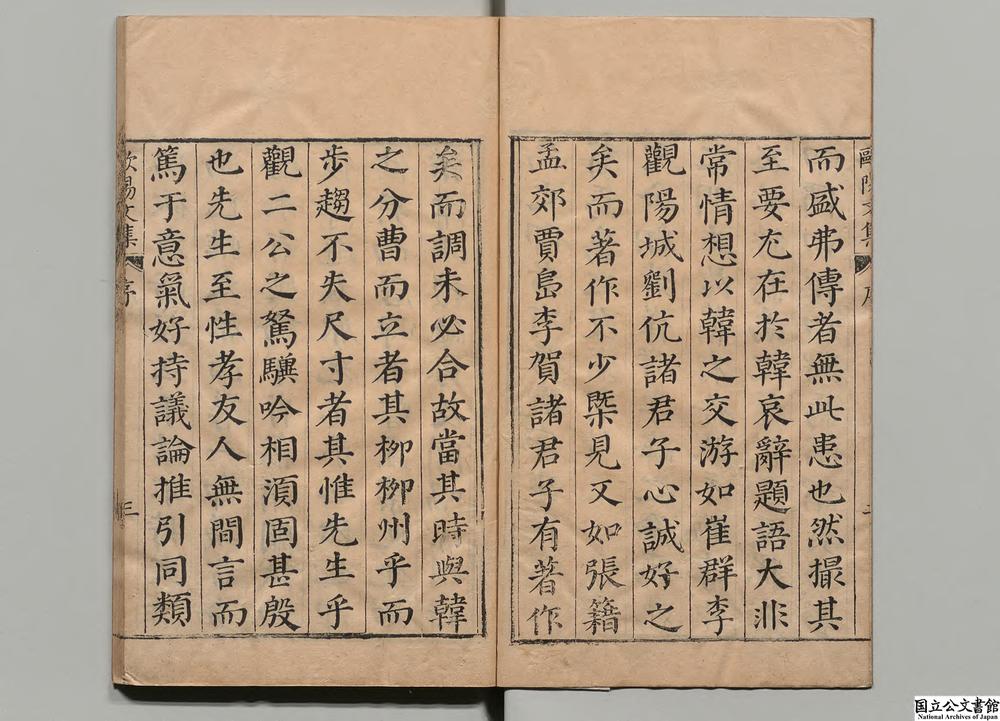 歐陽文集 序 二
而盛弗傳者無此患也然撮其
至要尤在於韓哀辭題語大非
常情想以韓之交游如崔群李
觀陽城劉伉諸君子心誠好之
矣而著作不少槩見又如張籍
孟郊賈島李賀諸君子有著作
矣而調未必合故當其時與韓
之分曹而立者其柳柳州乎而
步趨不失尺寸者其惟先生乎
觀二公之駑驥吟相湏固甚殷
也先生至性孝友人無間言而
篤于意氣好持議論推引同類
歐陽文集 序 三
国立公文書館
National Archives of Japan